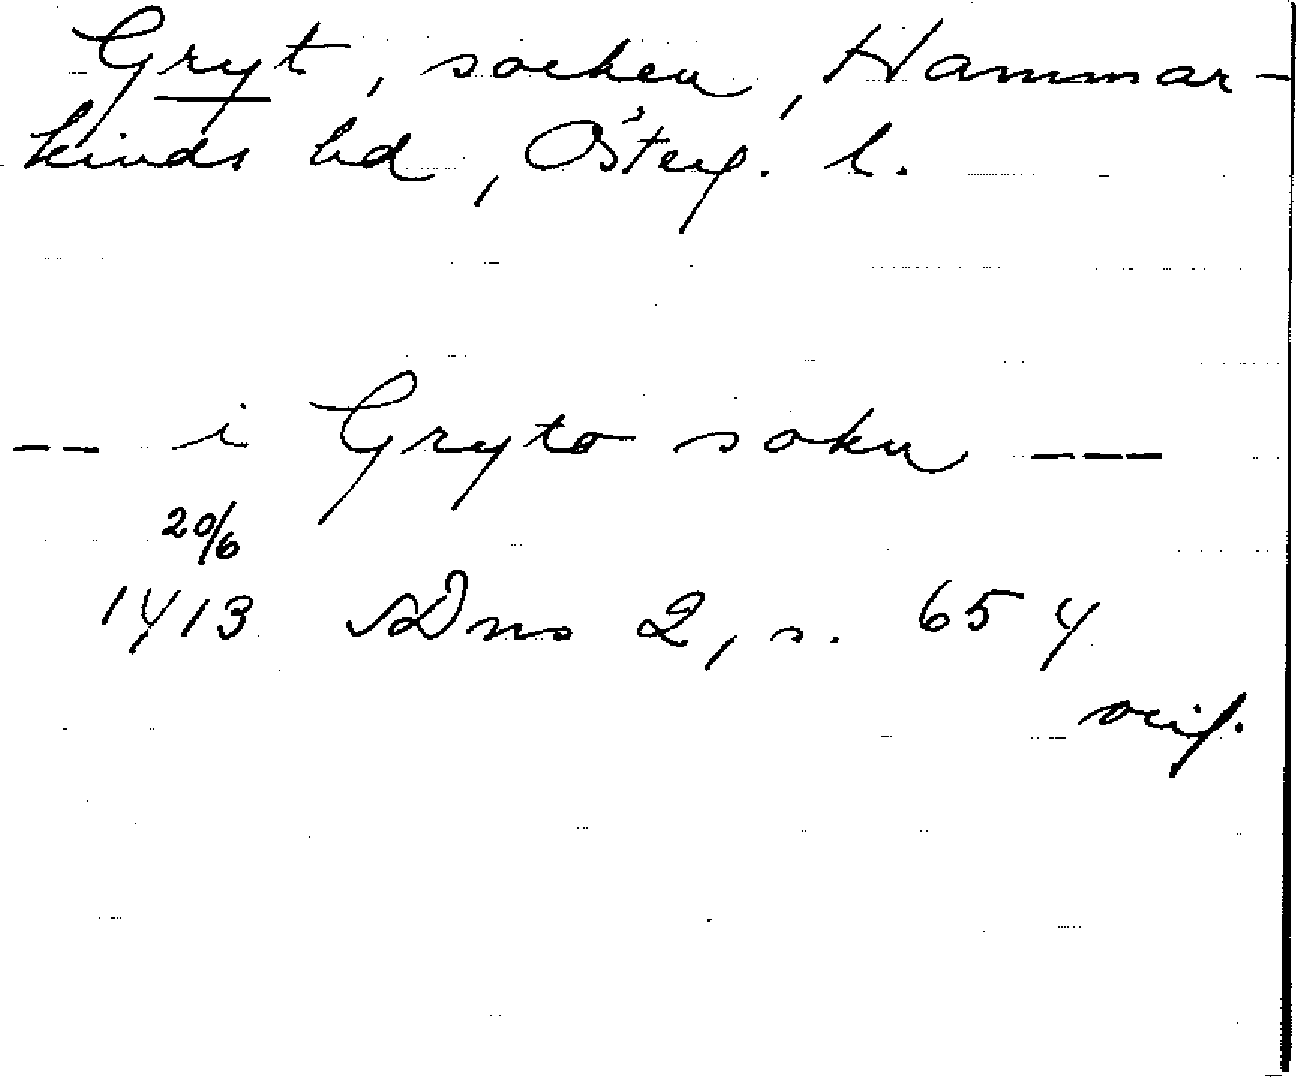 Gryt, socken, Hammar-
kinds hd, Österg. l.
-- i Gryto sokn ---
20/6
1413 SDns 2, s. 654
orig.